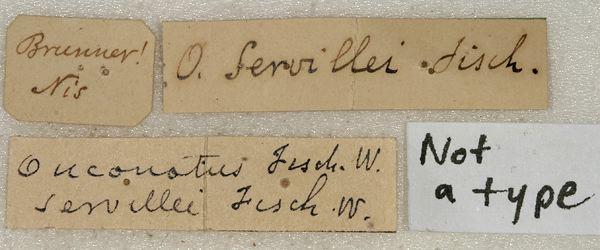 Brunner!
Nis
O. Servillei Fisch.
Onconotus Fisch. W.
Servillei Fisch. W.
Not
a type